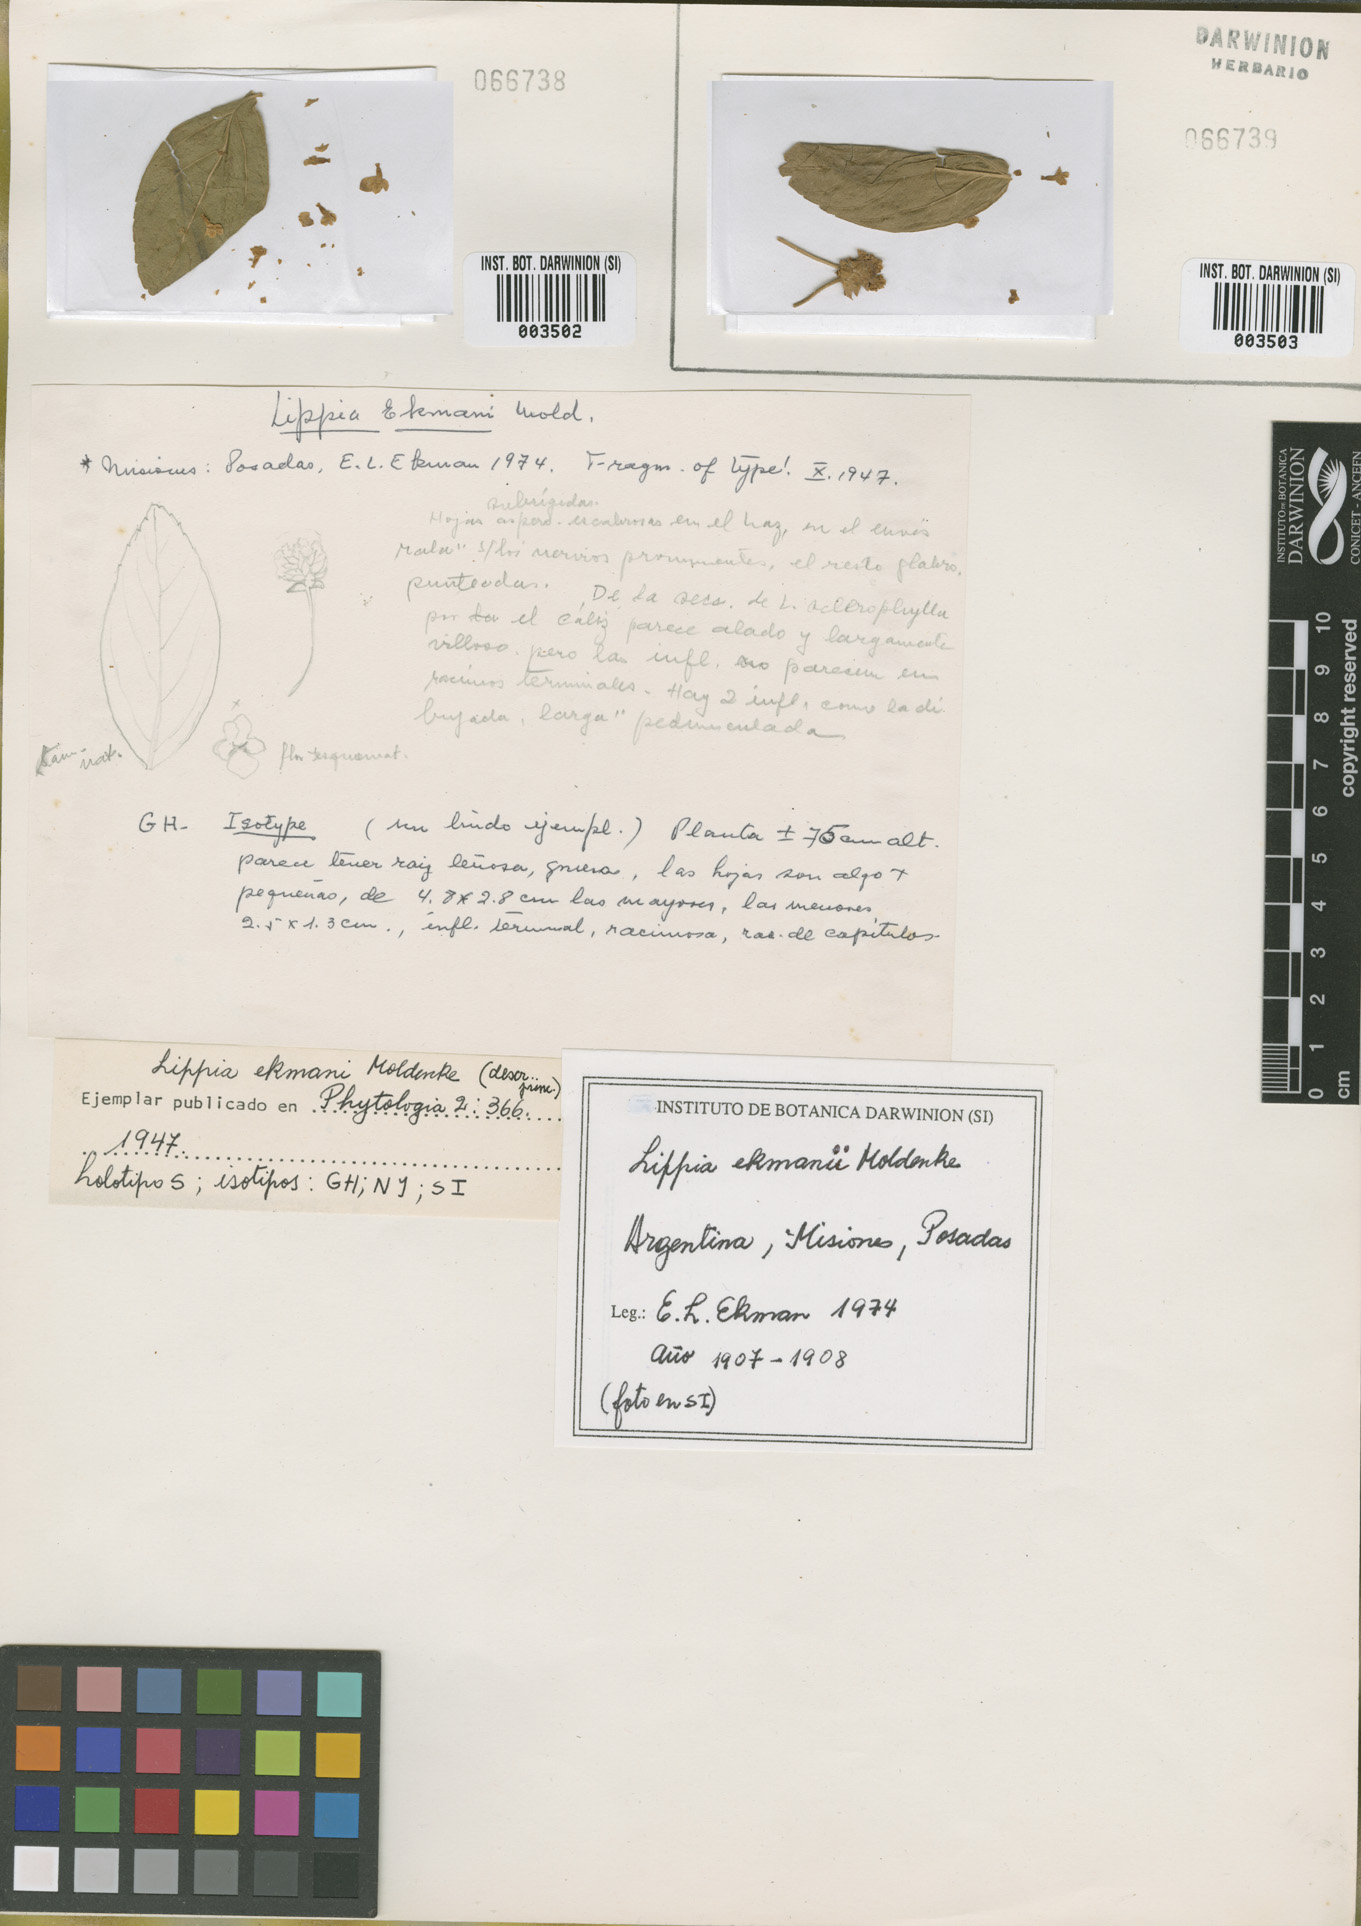 DARWINION
HERBARIO
066738
066739
INST. BOT. DARWINION (SI)
003502
INST. BOT. DARWINION (SI)
003503
Lippia Ekmani Mold.
* Misiones: Posadas, E. L. Ekman 1974. Fragm. of type! X. 1947.
subrígidas.
Hojas aspero-escabrosas en el haz, en el envés
rala" s/los nervios prominentes, el resto glabro,
punteadas. De la secc. de L. sclerophylla
por el cáliz parece alado y largamente
villoso. pero las infl. no parecen en
racimos terminales. Hay 2 infl. como la di
bujada, larga" pedunculada
tam. nat.
flor esquemat.
GH- Isotype (un lindo ejempl.) Planta ± 75 cm alt.
parece tener raiz leñosa, gruesa, las hojas son algo +
pequeñas, de 4.8 x 2.8 cm las mayores, las menores
2.5 x 1.3 cm., infl. terminal, racimosa, rac. de capítulos
Lippia ekmani Moldenke (descr. princ.)
Ejemplar publicado en Phytologia 2: 366.
1947.
holotipo S; isotipos: GH; NY; SI
INSTITUTO DE BOTANICA DARWINION (SI)
Lippia ekmanii Moldenke
Argentina, Misiones, Posadas
Leg.: E. L. Ekman 1974
Año 1907-1908
(foto en SI)
INSTITUTO DE BOTANICA
DARWINION
CONICET - ANCEFN
copyright reserved
cm 0 1 2 3 4 5 6 7 8 9 10